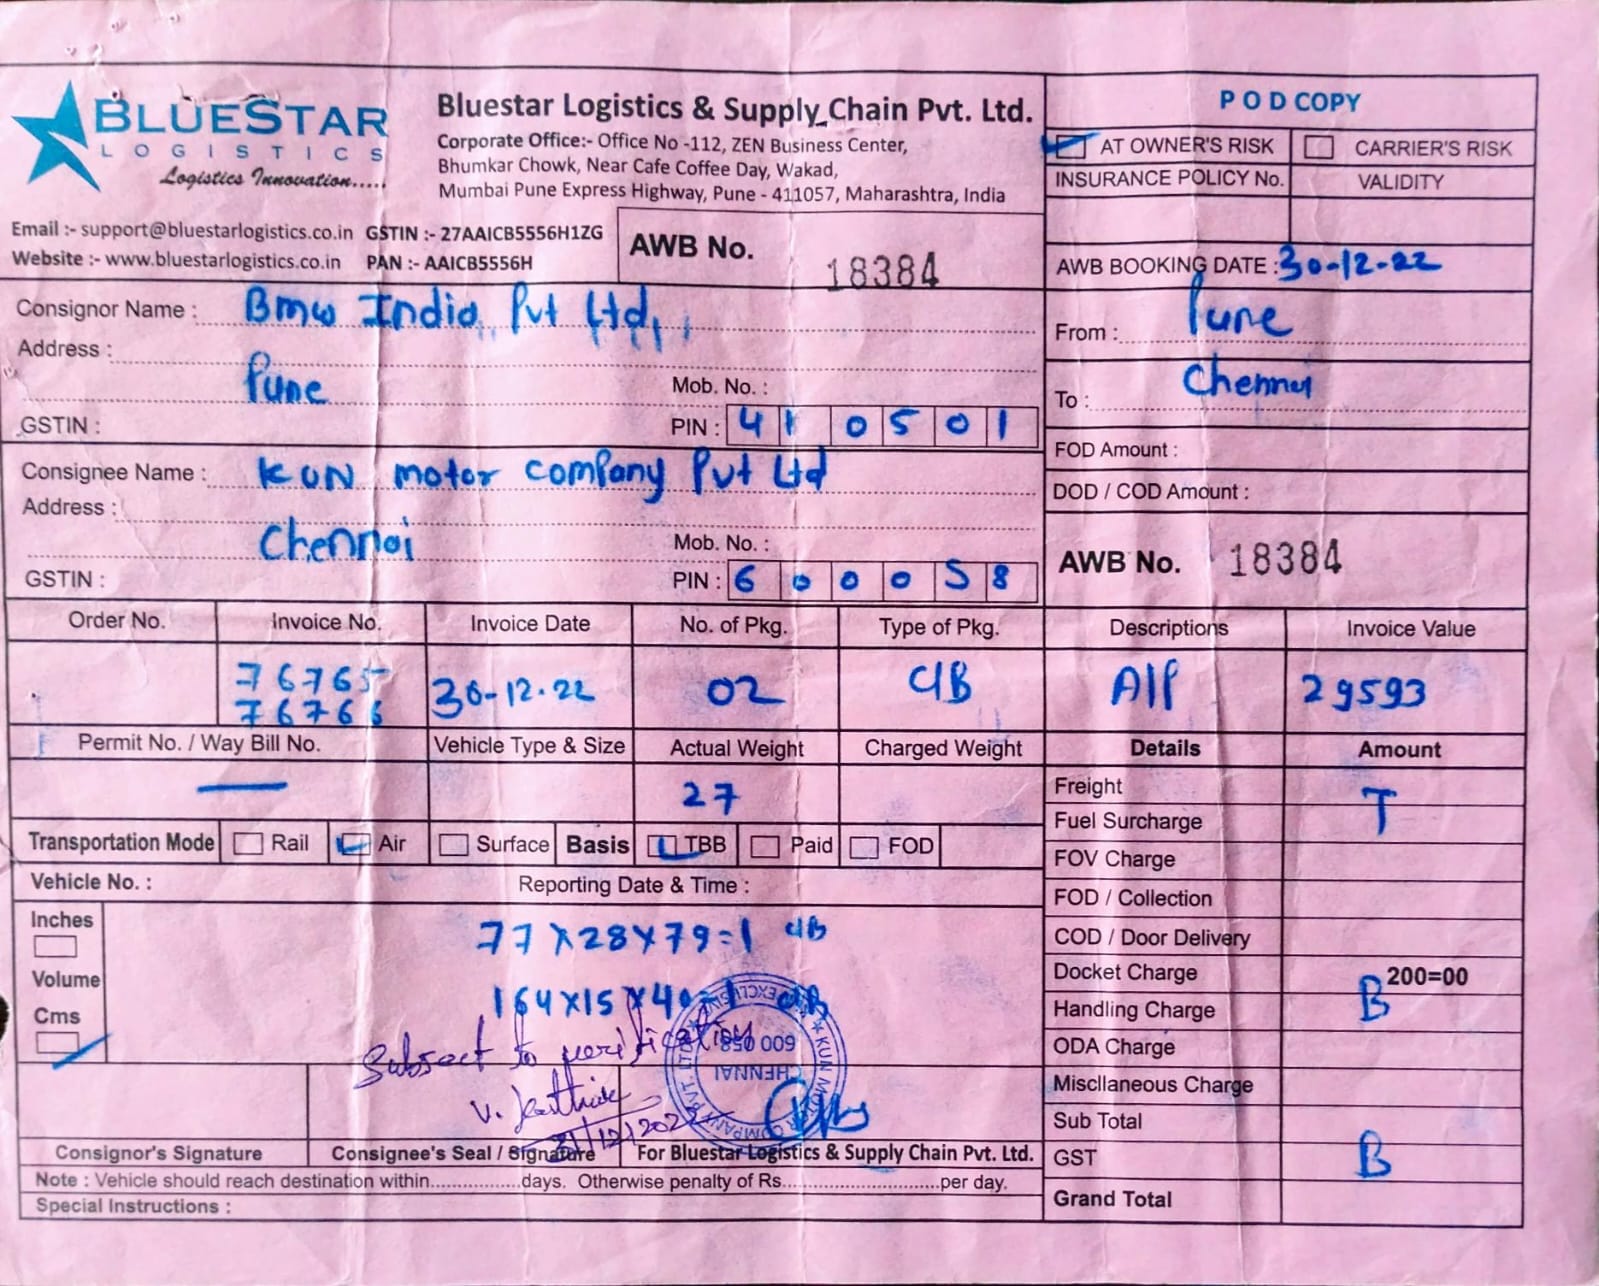 BLUESTAR
LOGISTICS
Logistics Innovation.....
Bluestar Logistics & Supply Chain Pvt. Ltd.
Corporate Office:- Office No -112, ZEN Business Center,
Bhumkar Chowk, Near Cafe Coffee Day, Wakad,
Mumbai Pune Express Highway, Pune - 411057, Maharashtra, India
Email :- support@bluestarlogistics.co.in GSTIN :- 27AAICB5556H1ZG
Website :- www.bluestarlogistics.co.in PAN :- AAICB5556H
AWB No. 18384
POD COPY
AT OWNER'S RISK CARRIER'S RISK
INSURANCE POLICY No. VALIDITY
AWB BOOKING DATE : 30-12-22
Consignor Name : Bmw India Pvt Ltd,
Address :
Pune Mob. No. :
GSTIN : PIN : 410501
From : Pune
To : Chennai
FOD Amount :
DOD / COD Amount :
Consignee Name : KUN motor company Pvt Ltd
Address :
Chennai Mob. No. :
GSTIN : PIN : 600058
AWB No. 18384
Order No. Invoice No. Invoice Date No. of Pkg. Type of Pkg. Descriptions Invoice Value
76765
76766 30-12-22 02 C/B A/P 29593
Permit No. / Way Bill No. Vehicle Type & Size Actual Weight Charged Weight Details Amount
— 27
Freight T
Fuel Surcharge
FOV Charge
FOD / Collection
COD / Door Delivery
Docket Charge 200=00
Handling Charge B
ODA Charge
Miscllaneous Charge
Sub Total
GST B
Grand Total
Transportation Mode Rail Air Surface Basis TBB Paid FOD
Vehicle No. : Reporting Date & Time :
Inches
Volume
Cms
77x28x79=1 C/B
164x15x40=1 C/B
Subject to verification
V. Karthick
31/12/2022
KUN MOTOR COMPANY PVT. LTD.
CHENNAI
600 058
Consignor's Signature Consignee's Seal / Signature For Bluestar Logistics & Supply Chain Pvt. Ltd.
Note : Vehicle should reach destination within................days. Otherwise penalty of Rs............................per day.
Special Instructions :